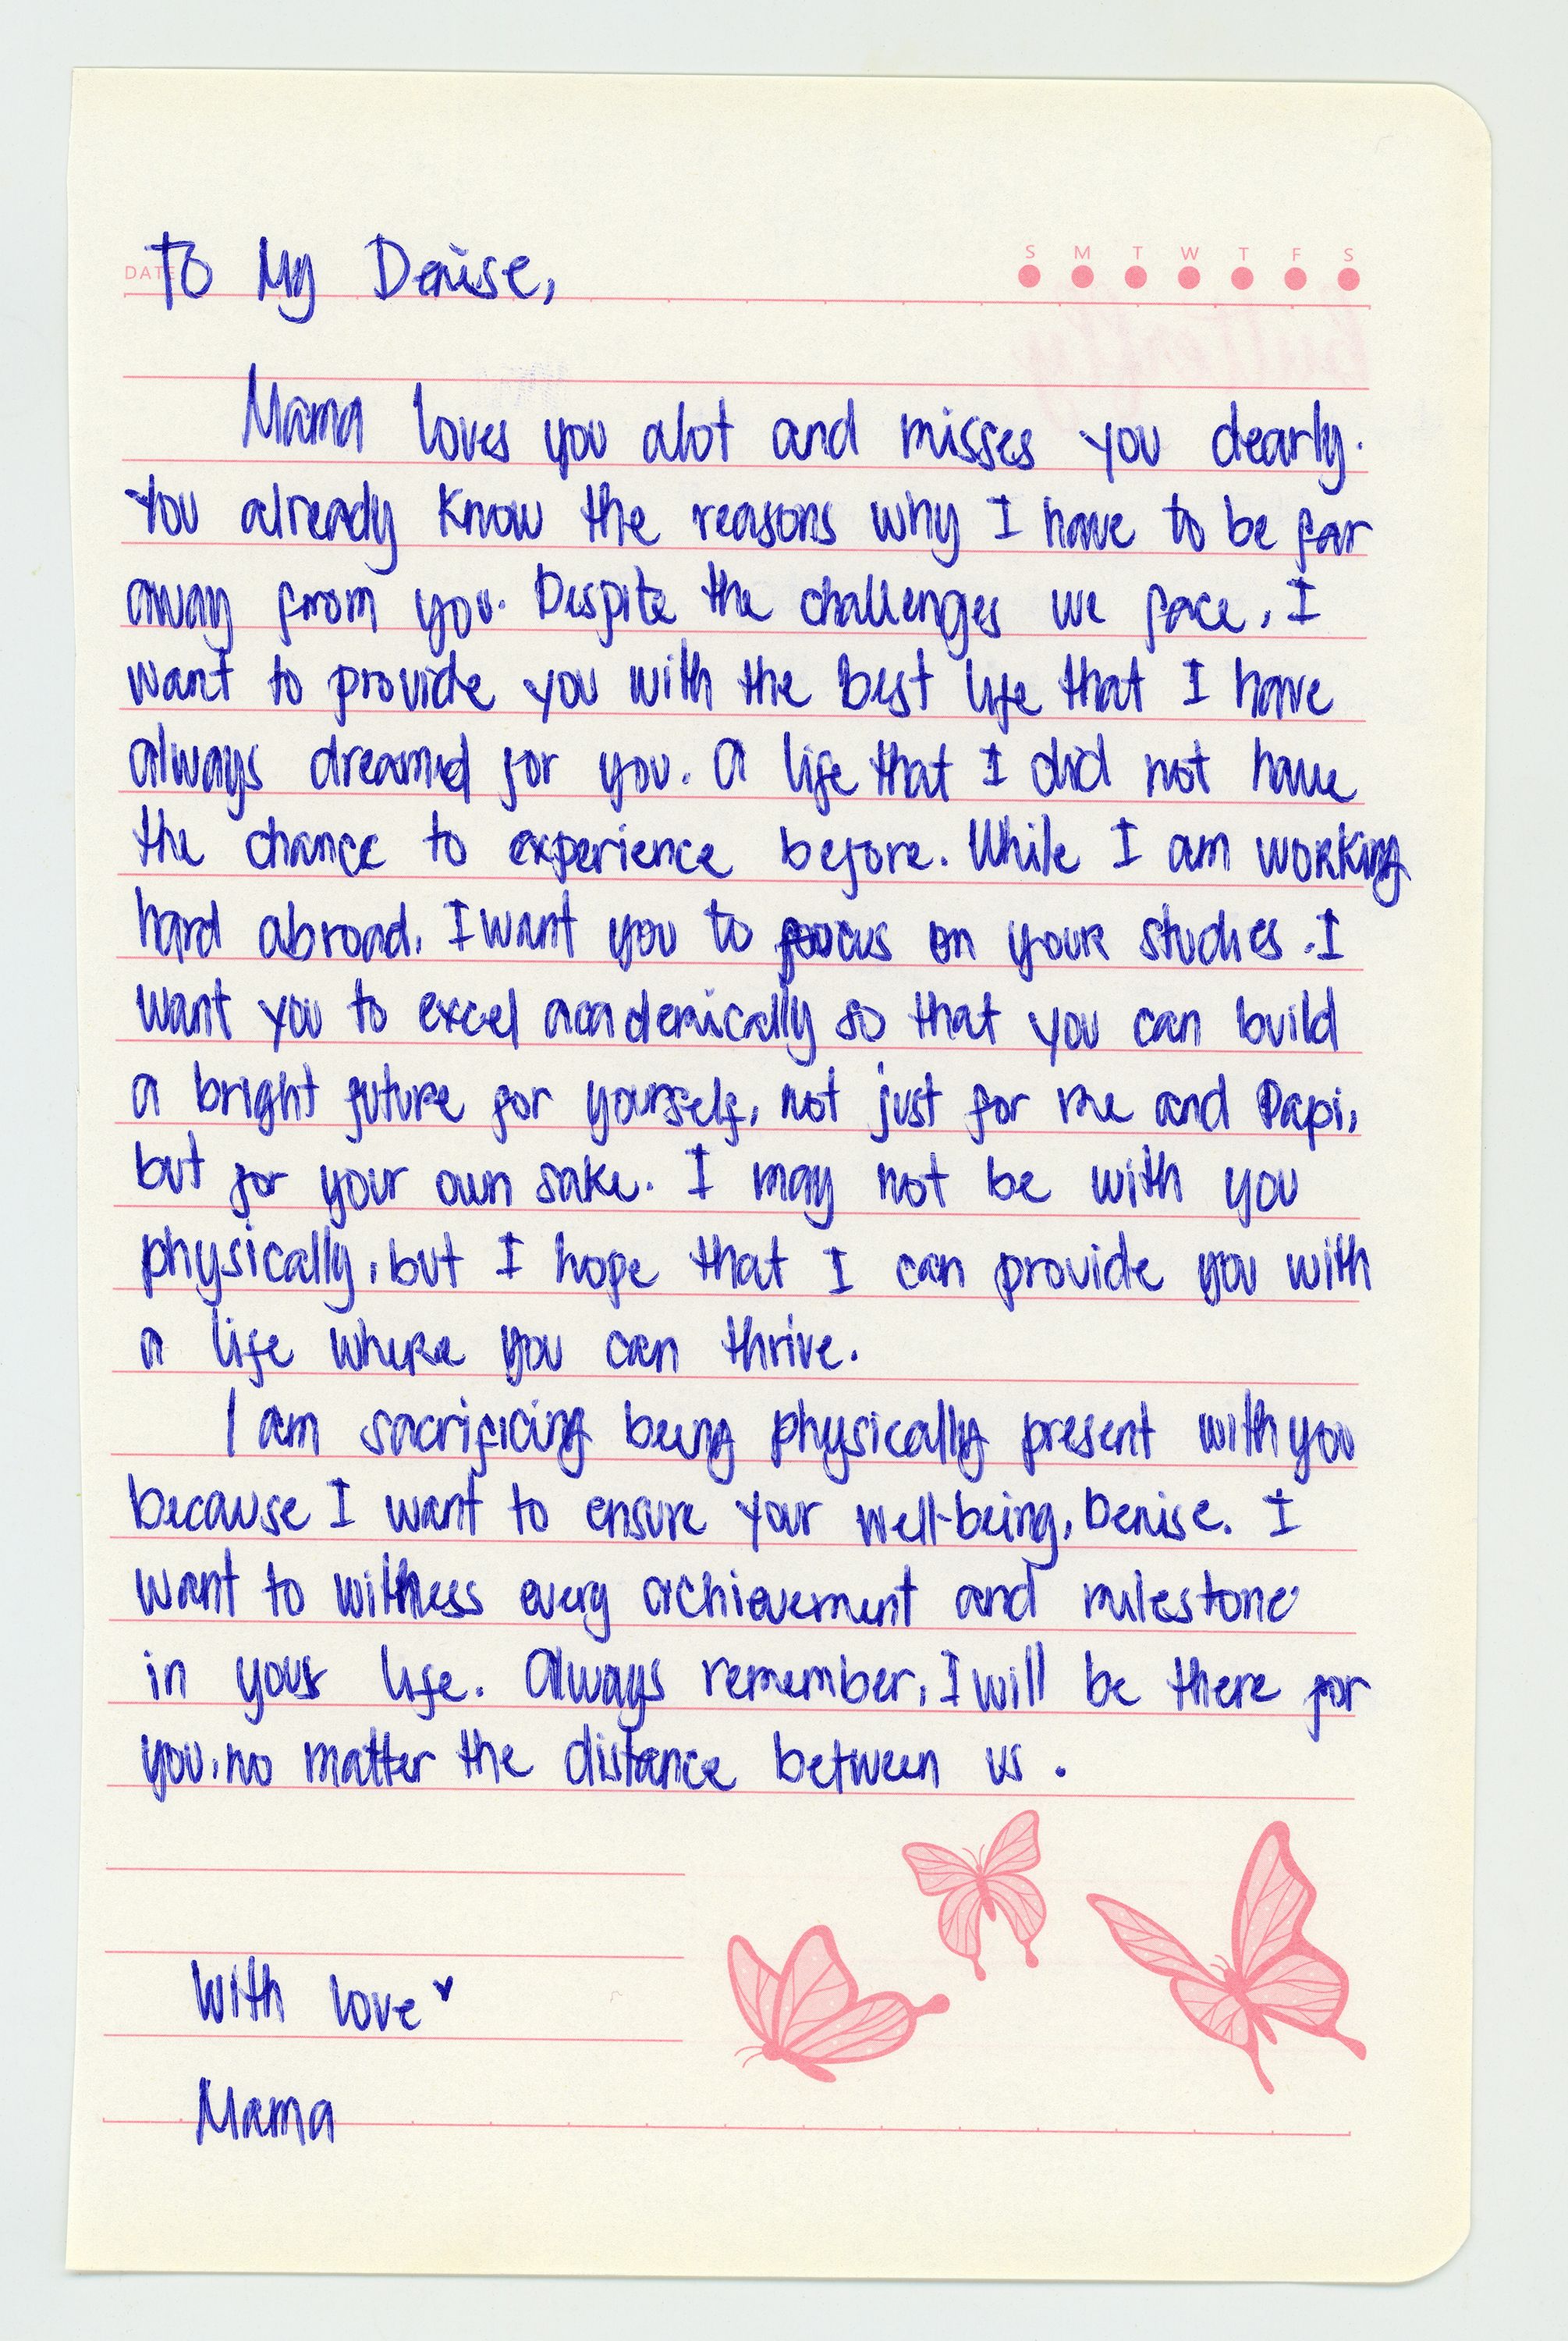 DATE
S M T W T F S
To My Denise,
Mama loves you alot and misses you dearly.
You already know the reasons why I have to be far
away from you. Despite the challenges we face, I
want to provide you with the best life that I have
always dreamed for you. A life that I did not have
the chance to experience before. While I am working
hard abroad, I want you to focus on your studies. I
want you to excel academically so that you can build
a bright future for yourself, not just for me and Papi,
but for your own sake. I may not be with you
physically, but I hope that I can provide you with
a life where you can thrive.
I am sacrificing being physically present with you
because I want to ensure your well-being, Denise. I
want to witness every achievement and milestone
in your life. Always remember, I will be there for
you, no matter the distance between us.
With love ♥
Mama